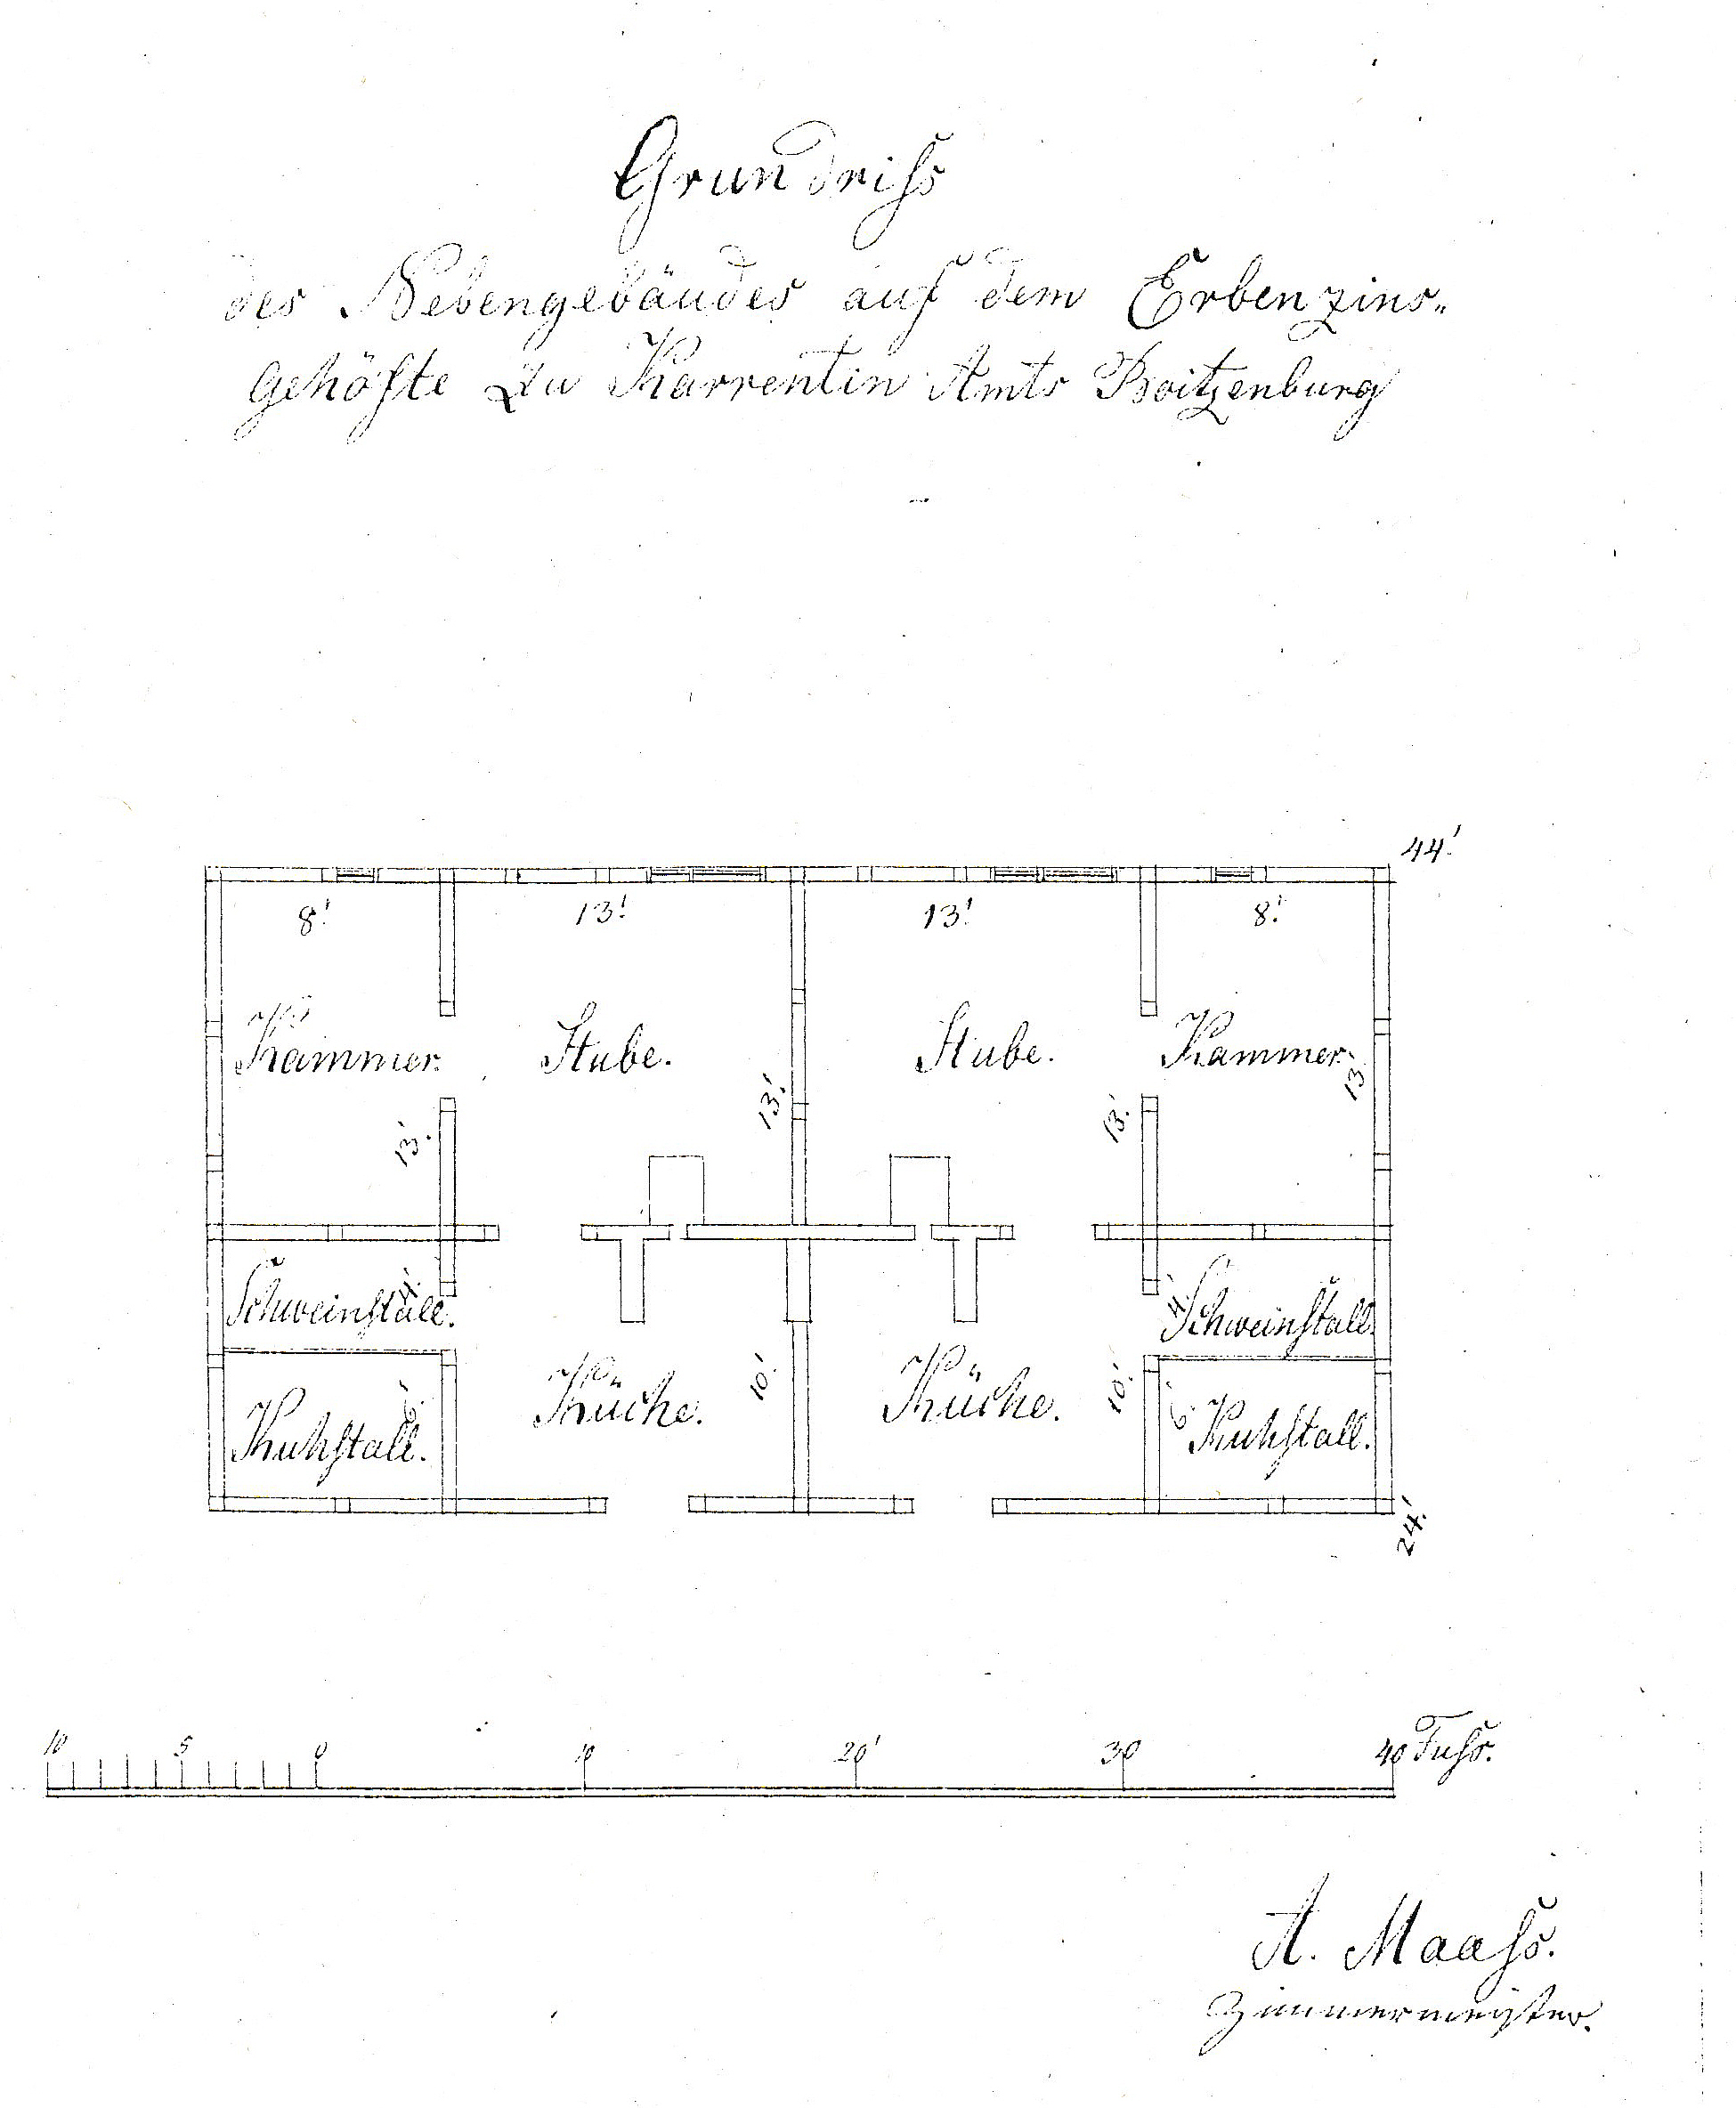 Grundriſs
des Nebengebäudes auf dem Erbenzins-
gehöfte zu Karrentin Amts Boitzenburg
44'
8' 13' 13' 8'
Kammer. Stube. Stube. Kammer.
13' 13' 13' 13'
Schweinstall. 4' 4' Schweinstall.
Kuhstall. 6' Küche. 10' Küche. 10' 6' Kuhstall.
24'
10 5 0 10 20' 30 40 Fuſs.
A. Maaſs.
Zimmermeister.